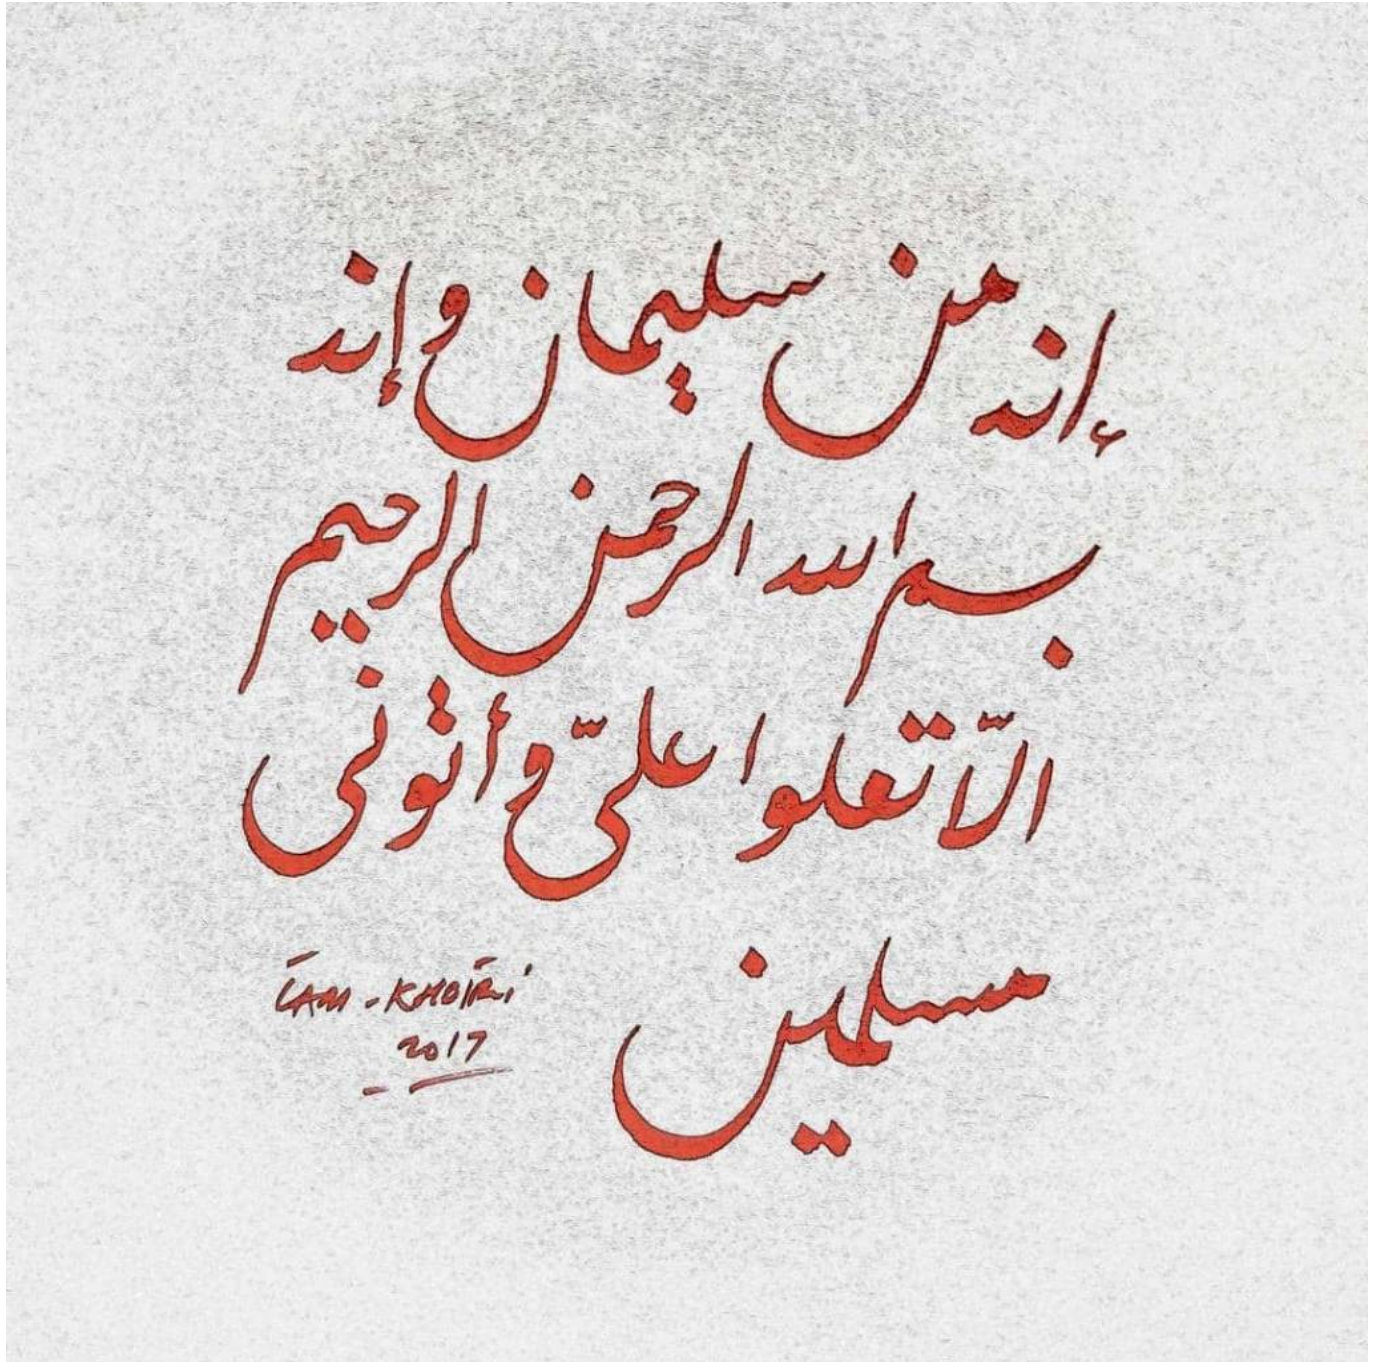 إنه من سليمان وإنه
بسم الله الرحمن الرحيم
الّا تعلوا عليّ وأتونى
مسلمين
LAM - KHOIRI
2017